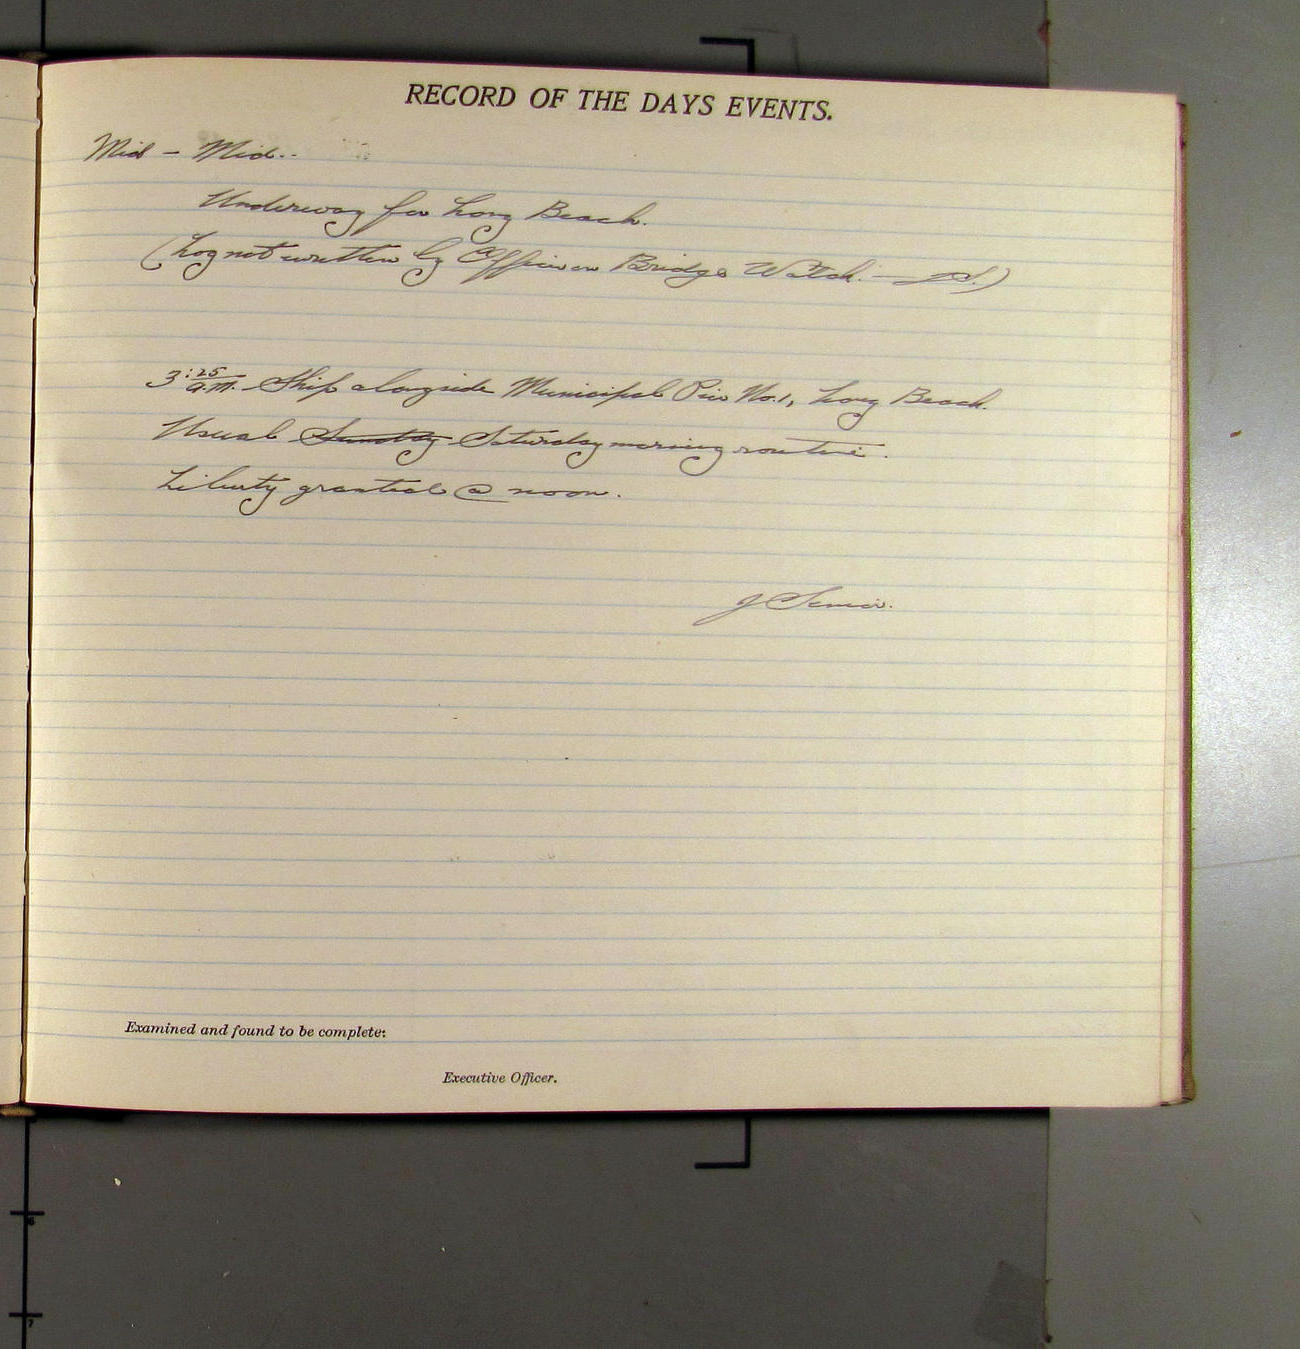 RECORD OF THE DAYS EVENTS.
Mid - Mid..
Underway for Long Beach.
(Log not written by Officer on Bridge Watch. — JS.)
3:25 a.m. Ship alongside Municipal Pier No. 1, Long Beach.
Usual Sunday Saturday morning routine.
Liberty granted @ noon.
J
Examined and found to be complete:
Executive Officer.
6
7